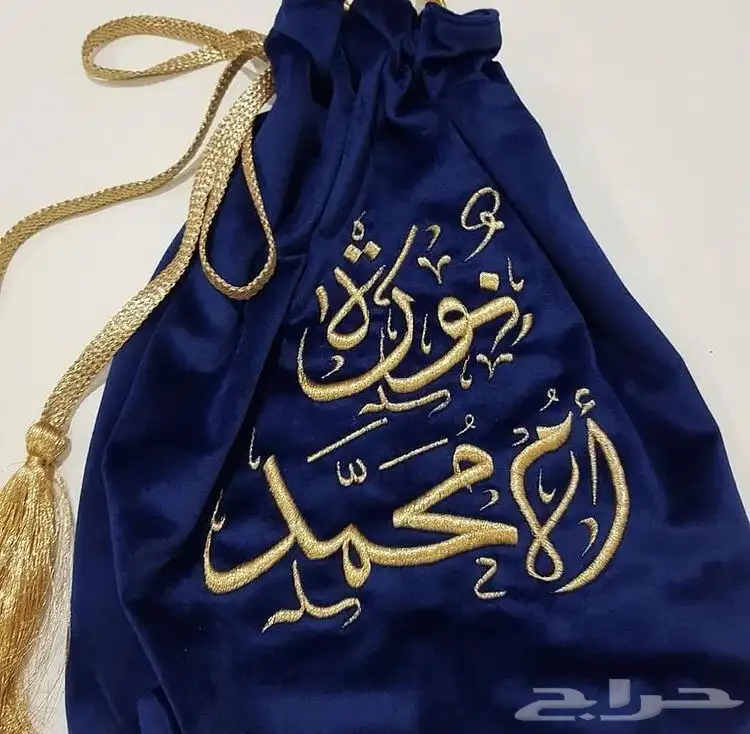 نُورَة
أُم مُحمَّد
حراج